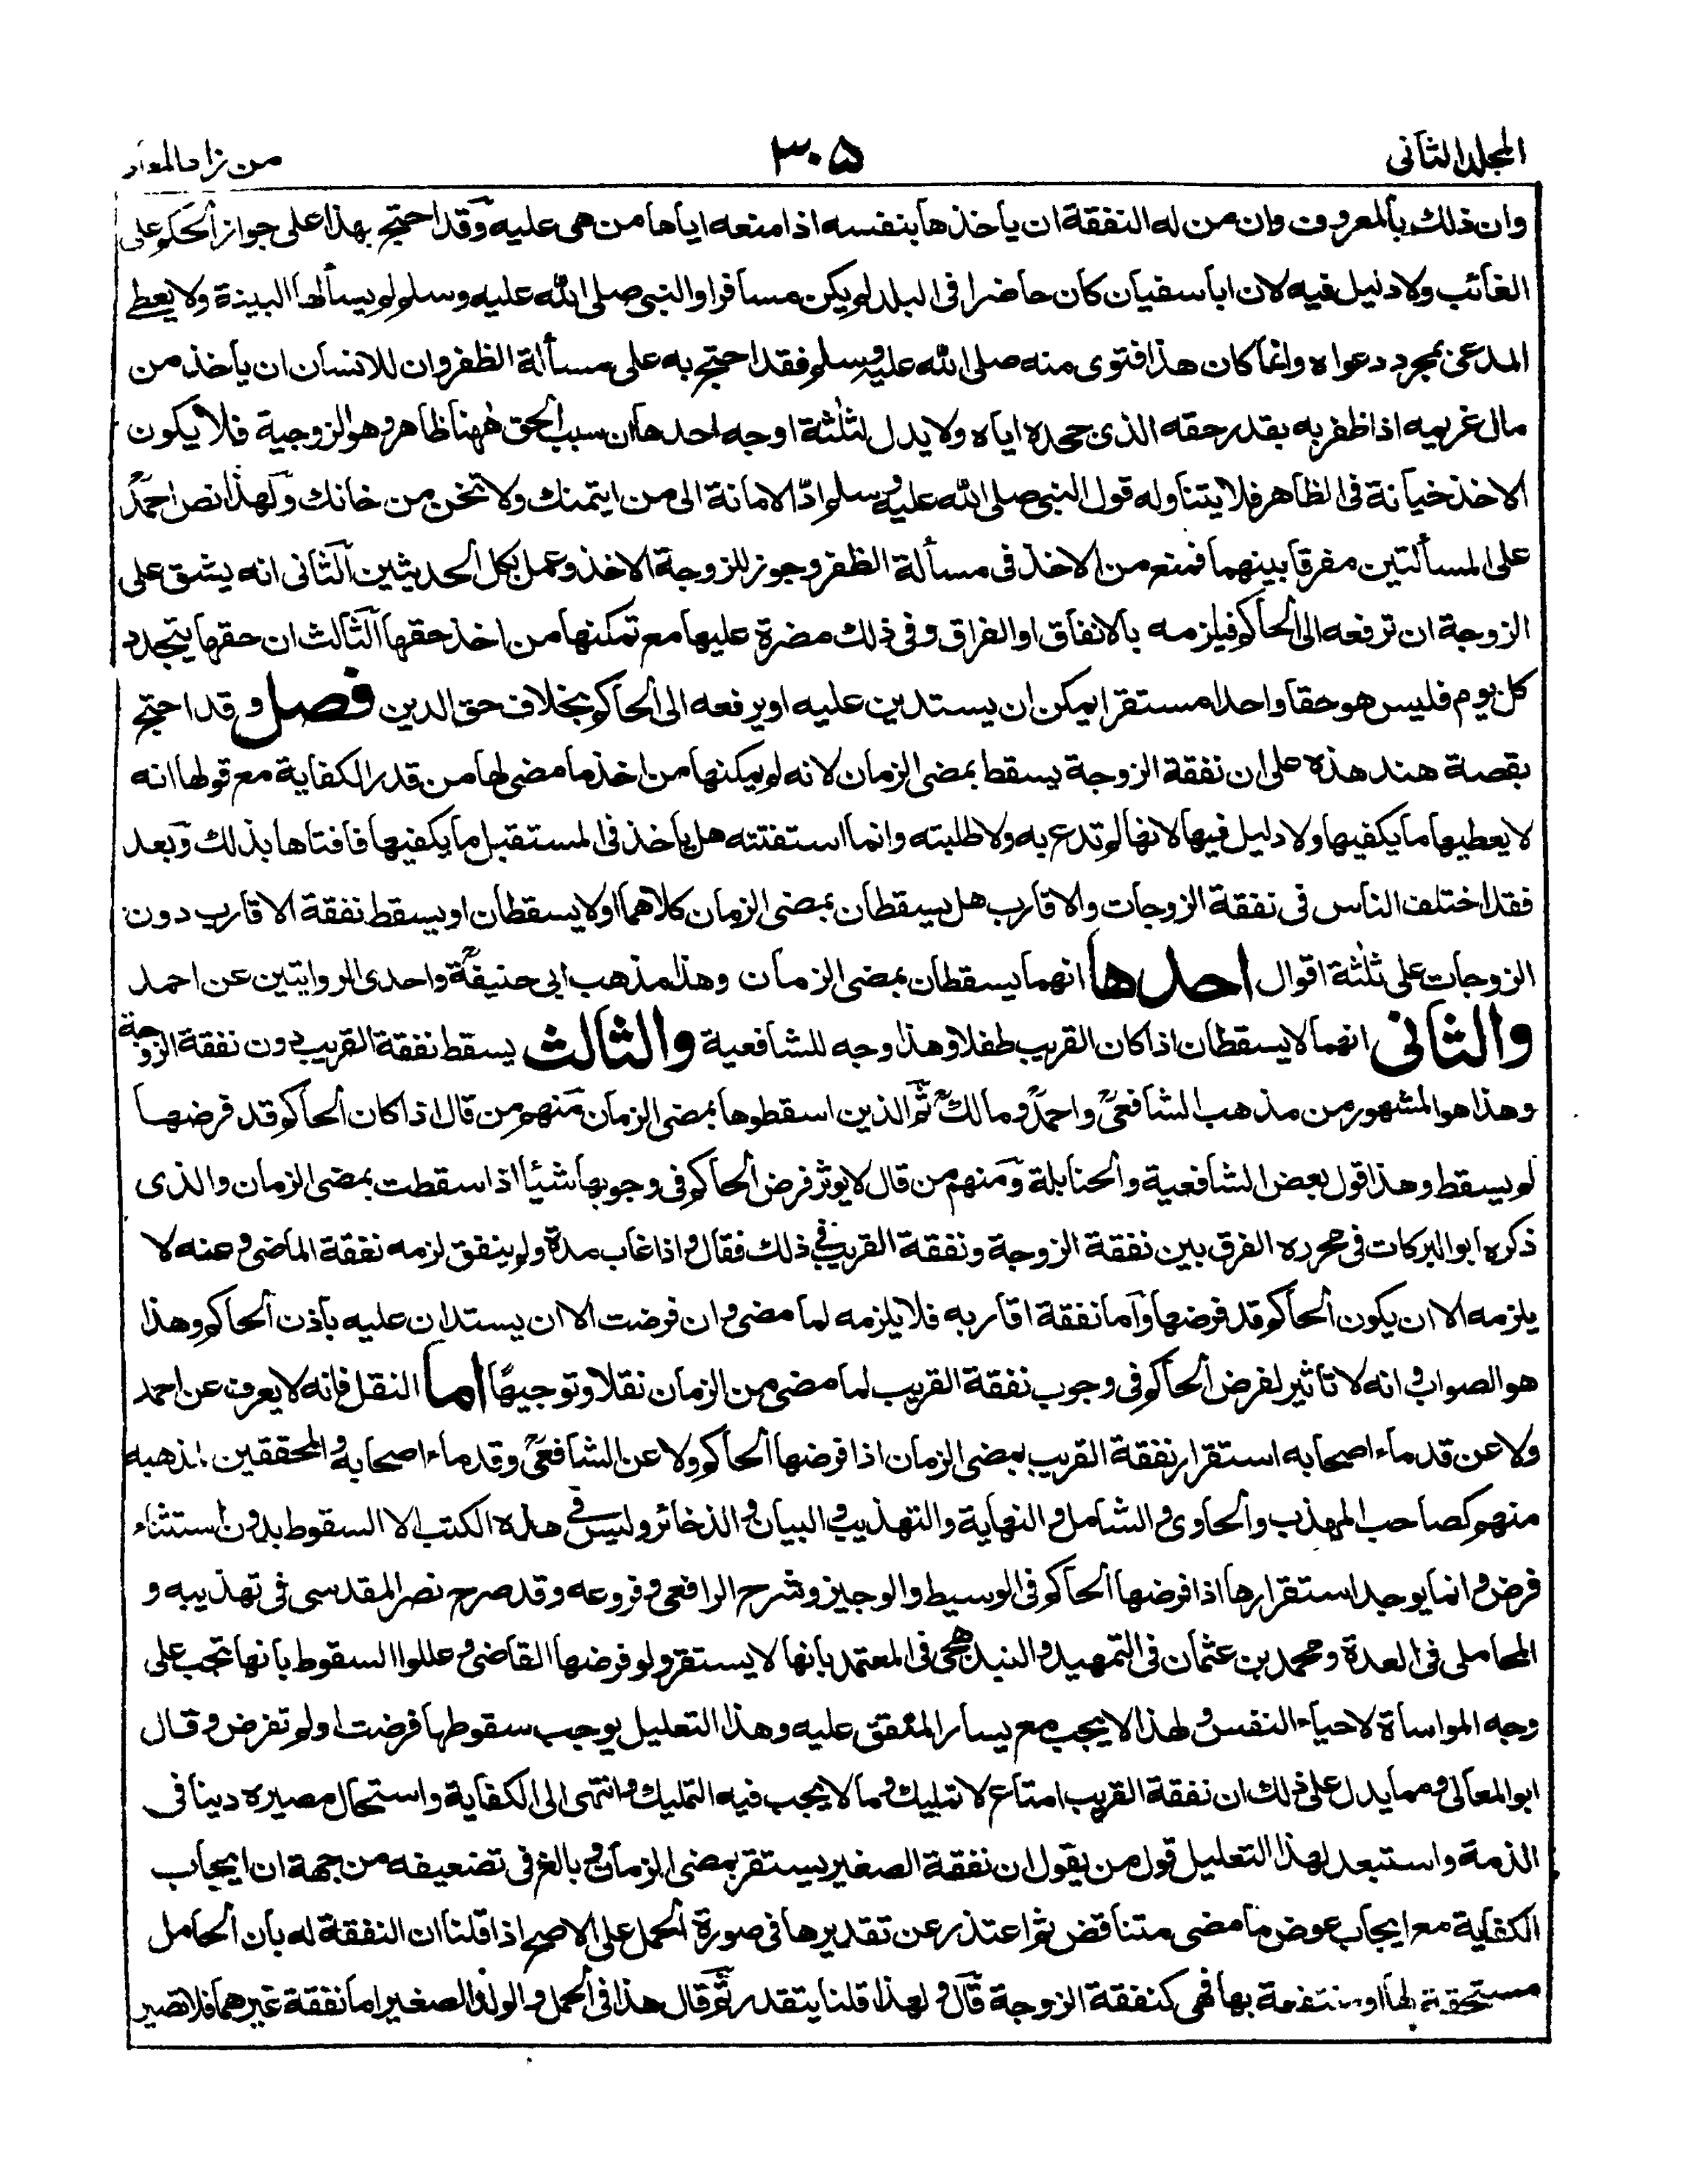 المجلد الثانى
٣٠٥
من زاد المعاد
وان ذلك بالمعروف وان من له النفقة ان ياخذها بنفسه اذا منعه اياها من هى عليه وقد احتج بهذا على جواز الحكم على
الغائب ولا دليل فيه لان ابا سفيان كان حاضرا فى البلد لم يكن مسافرا والنبى صلى الله عليه وسلم لم يسألها البينة ولا يعطى
المدعى بمجرد دعواه وانما كان هذا فتوى منه صلى الله عليه وسلم فقد احتج به على مسألة الظفر وان للانسان ان ياخذ من
مال غريمه اذا ظفر به بقدر حقه الذى جحده اياه ولا يدل لثلثة اوجه احدها ان سبب الحق ههنا ظاهر وهو الزوجية فلا يكون
الاخذ خيانة فى الظاهر فلا يتناوله قول النبى صلى الله عليه وسلم ادّ الامانة الى من ايتمنك ولا تخن من خانك ولهذا نص احمد
على المسألتين مفرقا بينهما فمنع من الاخذ فى مسألة الظفر وجوز للزوجة الاخذ وعمل بكل الحديثين الثانى انه يشق على
الزوجة ان ترفعه الى الحاكم فيلزمه بالانفاق او الفراق وفى ذلك مضرة عليها مع تمكنها من اخذ حقها الثالث ان حقها يتجدد
كل يوم فليس هو حقا واحدا مستقرا يمكن ان يستدين عليه او يرفعه الى الحاكم بخلاف حق الدين فصل وقد احتج
بقصة هند هذه على ان نفقة الزوجة يسقط بمضى الزمان لانه لم يمكنها من اخذ ما مضى لها من قدر الكفاية مع قولها انه
لا يعطيها ما يكفيها ولا دليل فيها لانها لم تدع به ولا طلبته وانما استفتته هل ياخذ فى المستقبل ما يكفيها فافتاها بذلك وبعد
فقد اختلف الناس فى نفقة الزوجات والاقارب هل يسقطان بمضى الزمان كلاهما او لا يسقطان او يسقط نفقة الاقارب دون
الزوجات على ثلثة اقوال احدها انهما يسقطان بمضى الزمان وهذا مذهب ابى حنيفة واحدى الروايتين عن احمد
والثانى انهما لا يسقطان اذا كان القريب طفلا وهذا وجه للشافعية والثالث يسقط نفقة القريب دون نفقة الزوجة
وهذا هو المشهور من مذهب الشافعى واحمد ومالك ثم الذين اسقطوها بمضى الزمان منهم من قال اذا كان الحاكم قد فرضها
لم يسقط وهذا قول بعض الشافعية والحنابلة ومنهم من قال لا يوثر فرض الحاكم فى وجوبها شيئا اذا سقطت بمضى الزمان والذى
ذكره ابو البركات فى محرره الفرق بين نفقة الزوجة ونفقة القريب فى ذلك فقال واذا غاب مدة ولم ينفق لزمه نفقة الماضى وعنه لا
يلزمه الا ان يكون الحاكم قد فرضها واما نفقة اقاربه فلا يلزمه لما مضى وان فرضت الا ان يستدان عليه باذن الحاكم وهذا
هو الصواب وانه لا تاثير لفرض الحاكم فى وجوب نفقة القريب لما مضى من الزمان نقلا وتوجيها اما النقل فانه لا يعرف عن احمد
ولا عن قدماء اصحابه استقرار نفقة القريب بمضى الزمان اذا فرضها الحاكم ولا عن الشافعى وقدماء اصحابه والمحققين لمذهبه
منهم كصاحب المهذب والحاوى والشامل والنهاية والتهذيب والبيان والذخائر وليس فى هذه الكتب الا السقوط بدون استثناء
فرض وانما يوجد استقرارها اذا فرضها الحاكم فى الوسيط والوجيز وشرح الرافعى وفروعه وقد صرح نصر المقدسى فى تهذيبه و
المحاملى فى العدة ومحمد بن عثمان فى التمهيد والبندهجى فى المعتمد بانها لا يستقر ولو فرضها القاضى وعللوا السقوط بانها تجب على
وجه المواساة لاحياء النفس ولهذا لا يجب مع يسار المنفق عليه وهذا التعليل يوجب سقوطها فرضت او لم تفرض وقال
ابو المعالى ومما يدل على ذلك ان نفقة القريب امتاع لا تمليك وما لا يجب فيه التمليك وانتهى الى الكفاية واستحال مصيره دينا فى
الذمة واستبعد لهذا التعليل قول من يقول ان نفقة الصغير يستقر بمضى الزمان وبالغ فى تضعيفه من جهة ان ايجاب
الكفاية مع ايجاب عوض ما مضى متناقض ثم اعتذر عن تقديرها فى صورة الحمل على الاصح اذا قلنا ان النفقة له بان الحامل
مستحقة لها او منتفعة بها فهى كنفقة الزوجة قال ولهذا قلنا يتقدر ثم قال هذا فى الحمل والولد الصغير اما نفقة غيرهما فلا تصير